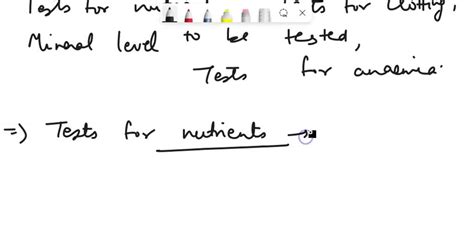 Tests for nut ts for Clotting,
Mineral level to be tested,
Tests for anaemia.
=) Tests for nutrients →